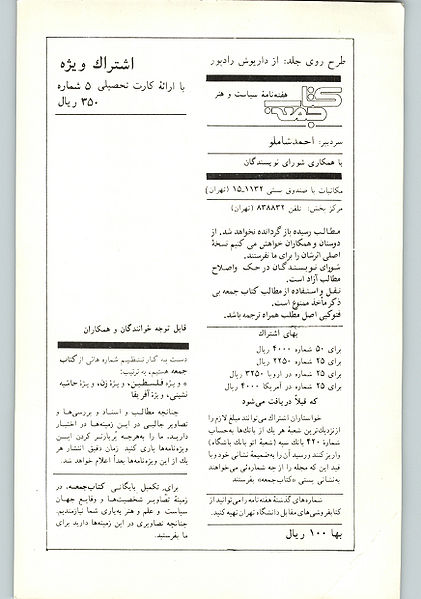 طرح روی جلد: از داریوش رادپور
کتاب جمعه
هفته‌نامهٔ سیاست و هنر
سردبیر: احمد شاملو
با همکاری شورای نویسندگان
مکاتبات با صندوق پستی ۱۱۳۲ـ۱۵ (تهران)
مرکز پخش: تلفن ۸۳۸۸۳۲ (تهران)
مطالب رسیده باز گردانده نخواهد شد. از
دوستان و همکاران خواهش می کنیم نسخهٔ
اصلی اثرشان را برای ما نفرستند.
شورای نویسندگان در حک واصلاح
مطالب آزاد است.
نقل و استفاده از مطالب کتاب جمعه بی
ذکر مأخذ ممنوع است.
فتوکپی اصل مطلب همراه ترجمه باشد.
بهای اشتراك
برای ۵۰ شماره ۴۰۰۰ ریال
برای ۲۵ شماره ۲۲۵۰ ریال
برای ۲۵ شماره در اروپا ۳۲۵۰ ریال
برای ۲۵ شماره در آمریکا ۴۰۰۰ ریال
که قبلاً دریافت می‌شود
خواستاران اشتراك می‌توانند مبلغ لازم را
ازنزدیك‌ترین شعبهٔ هر یك از بانك‌ها به‌حساب
شمارهٔ ۴۲۰ بانك سپه (شعبهٔ اتو بانك باشگاه)
واریز کنند و رسید آن را به‌ضمیمهٔ نشانی خود و با
قید این که مجله را از چه شماره‌ئی می‌خواهند
به‌نشانی پستی «کتاب‌جمعه» بفرستند.
شماره‌های گذشتهٔ هفته‌نامه را می‌توانید از
کتابفروشی‌های مقابل دانشگاه تهران تهیه کنید.
بها ۱۰۰ ریال
اشتراك ویژه
با ارائهٔ کارت تحصیلی ۵ شماره
۳۵۰ ریال
قابل توجه خوانندگان و همکاران
دست به کار تنظیم شماره هائی از کتاب
جمعه هستیم، به ترتیب:
* ویژهٔ فلسطین، ویژهٔ زن، ویژهٔ حاشیه
نشینی، ویژهٔ آفریقا
چنانچه مطالب و اسناد و بررسی‌ها و
تصاویر جالبی در این زمینه‌ها در اختیار
دارید، ما را به‌هرچه پربارتر کردن این
ویژه‌نامه‌ها یاری کنید. زمان دقیق انتشار هر
یك از این ویژه‌نامه‌ها بعداً اعلام خواهد شد.
برای تکمیل بایگانی کتاب‌جمعه، در
زمینهٔ تصاویر شخصیت‌ها و وقایع جهان
سیاست و علم و هنر به‌یاری شما نیازمندیم.
چنانچه تصاویری در این زمینه‌ها دارید برای
ما بفرستید.